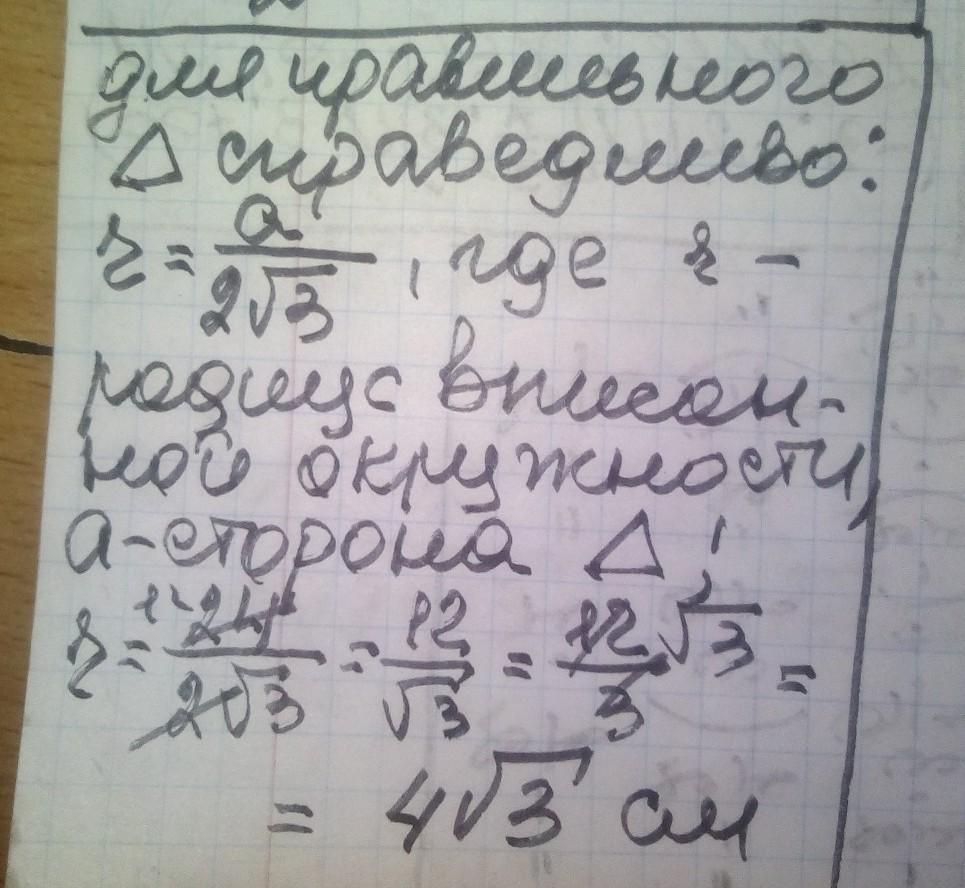 для правильного
Δ справедливо:
r = a/(2√3), где r -
радиус вписан-
ной окружности,
a - сторона Δ;
r = 12 24/(2√3) = 12/√3 = 12√3/3 =
= 4√3 см